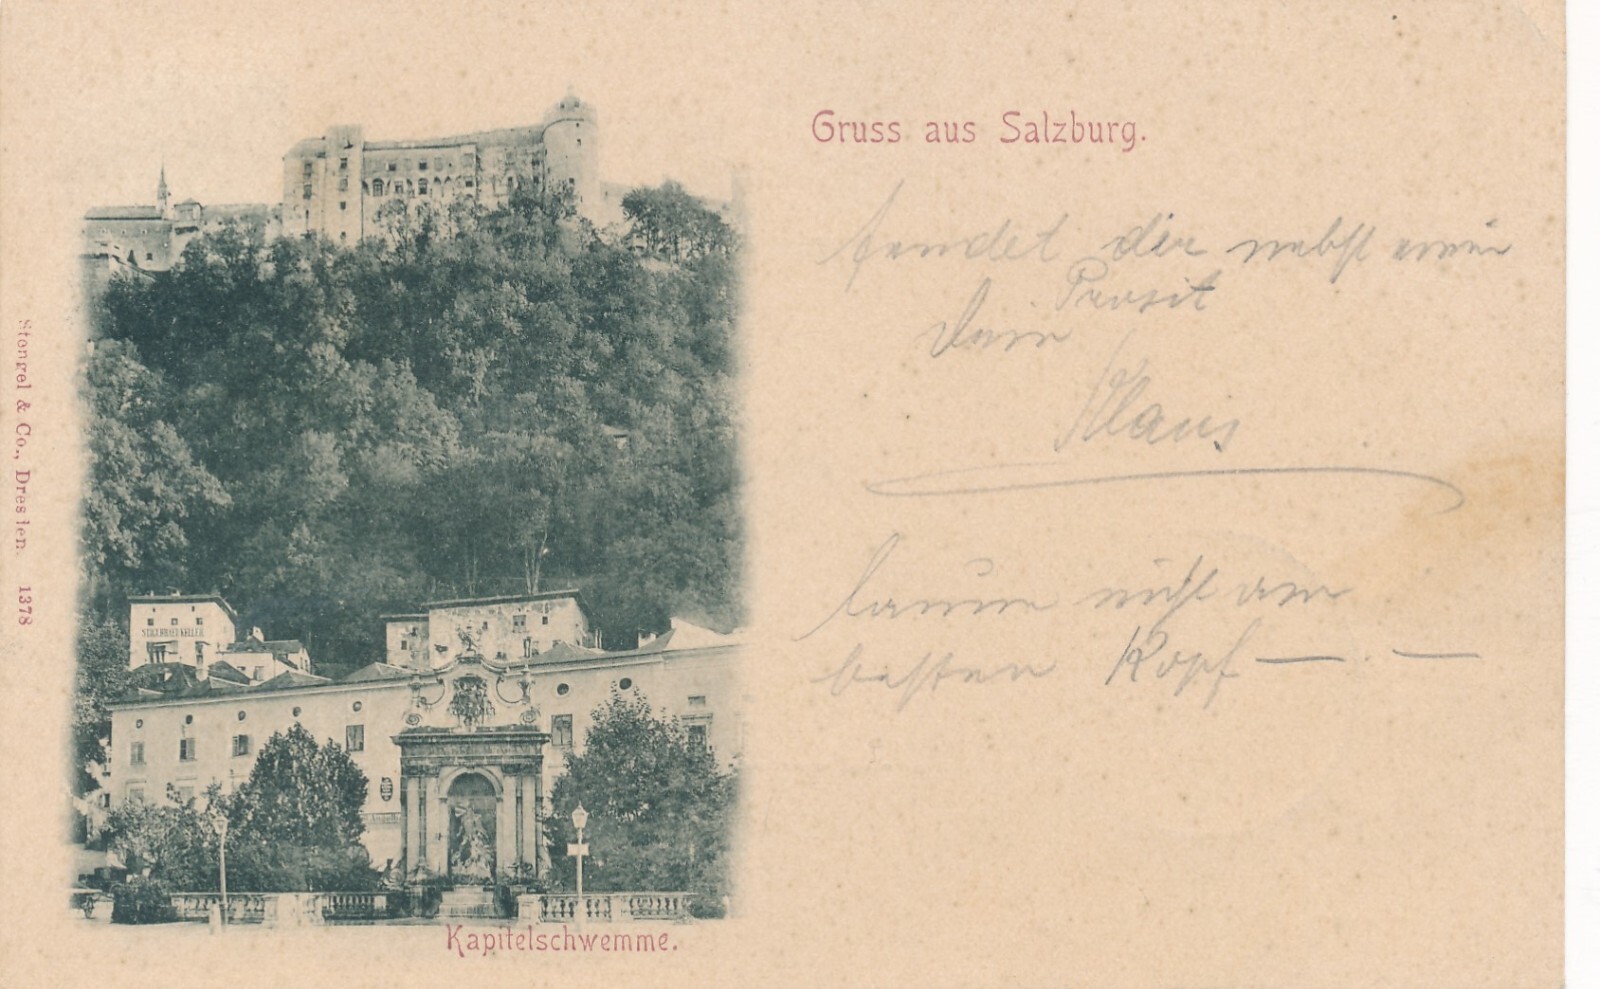 Gruss aus Salzburg.
sendet dir nebst einem
Prosit
Dein
Klaus
nicht am
besten Kopf — . —
STIEGLBRÄU KELLER
Kapitelschwemme.
Stengel & Co., Dresden. 1378